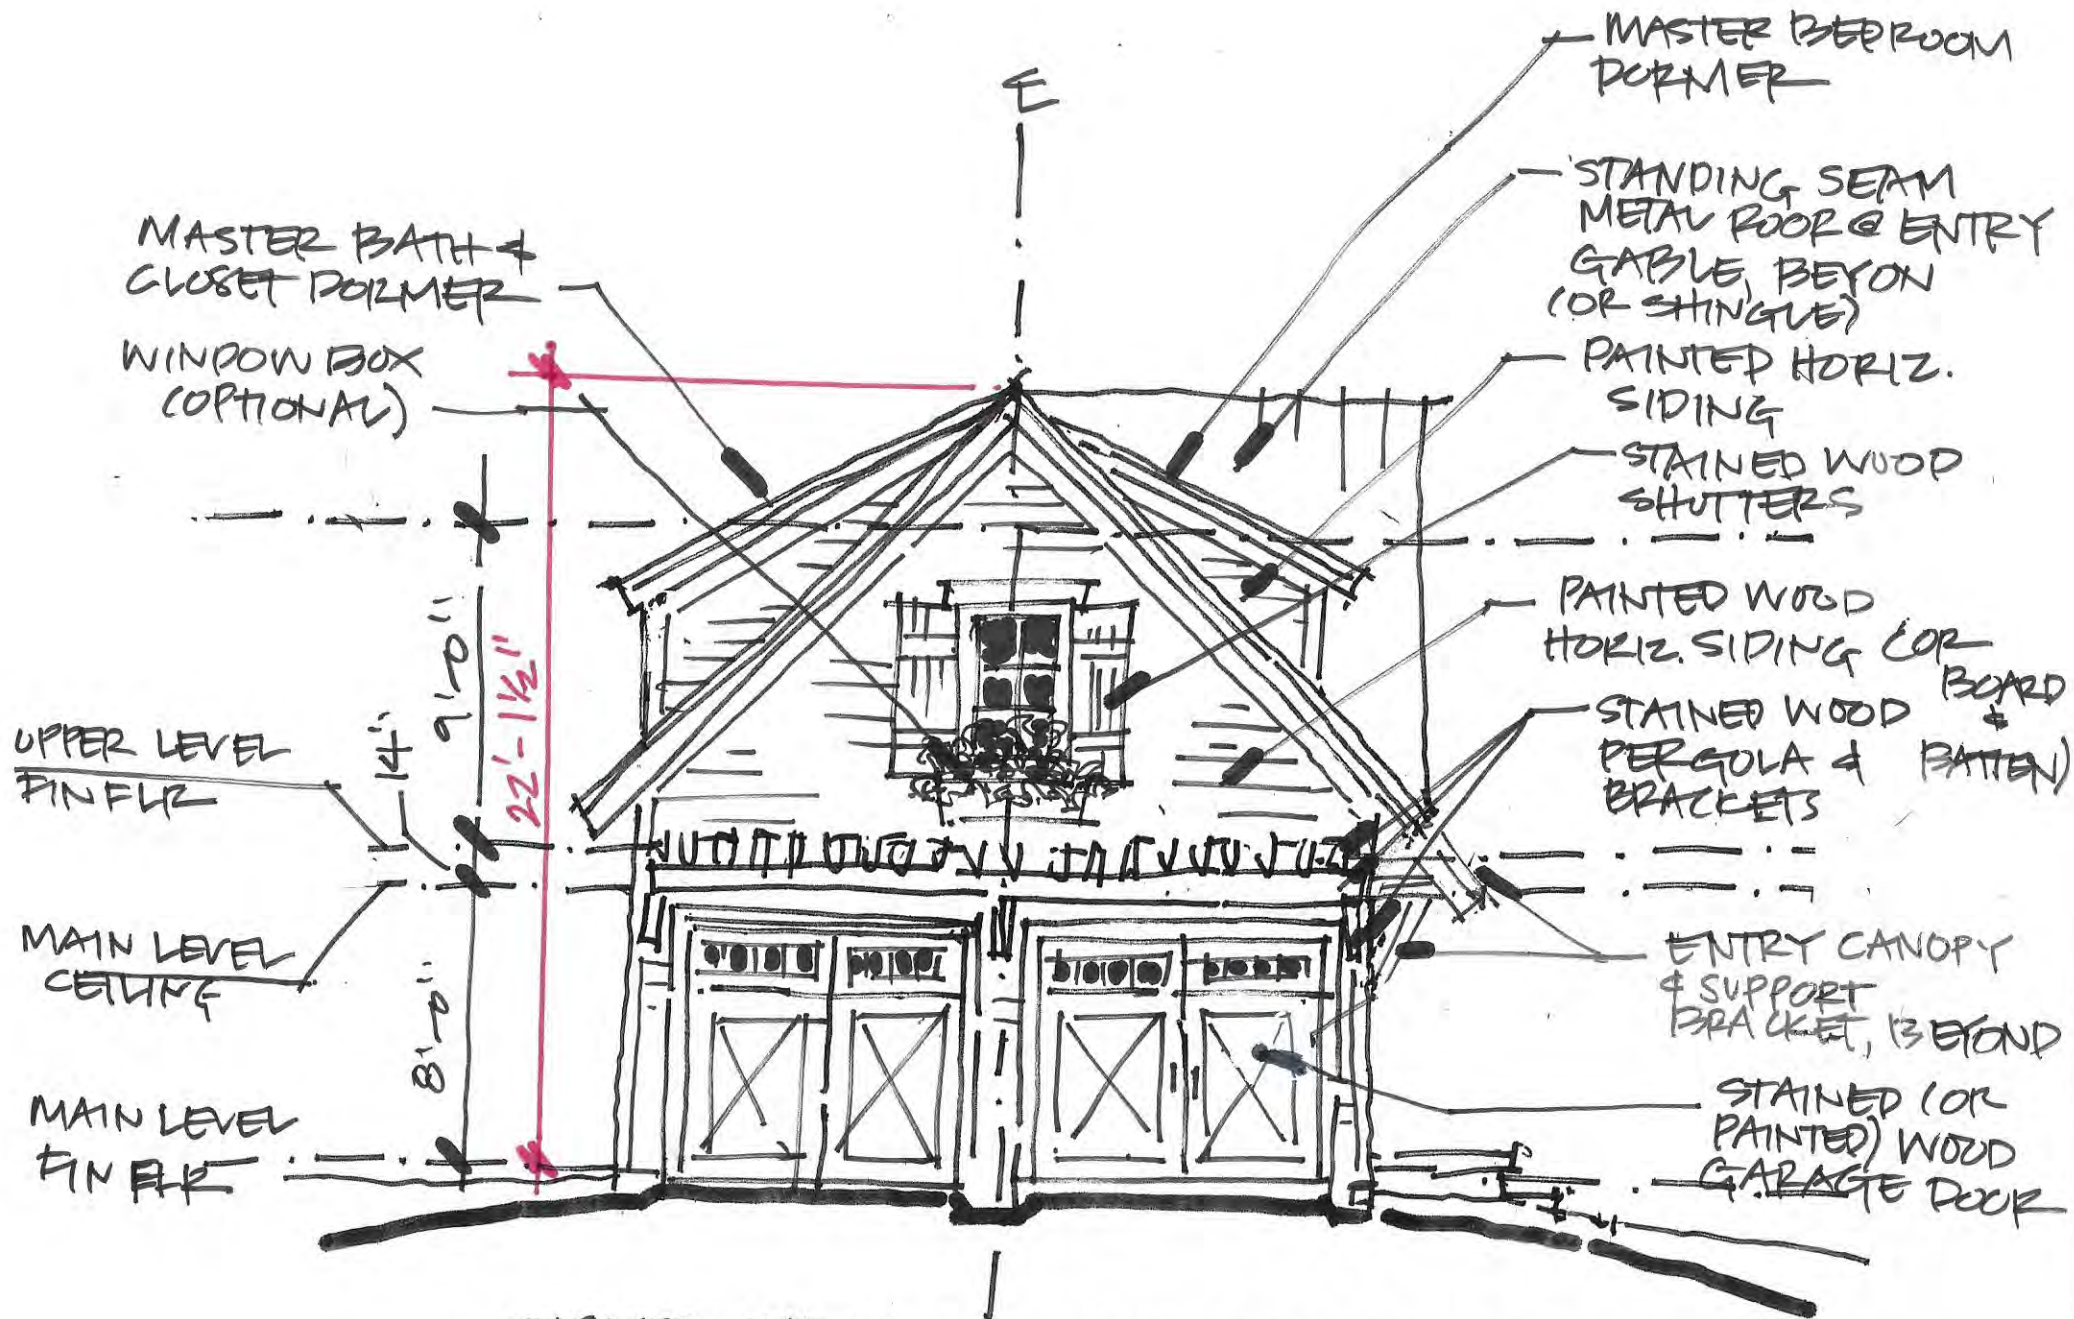 ℄
MASTER BEDROOM
DORMER
STANDING SEAM
METAL ROOF @ ENTRY
GABLE, BEYON
(OR SHINGLE)
MASTER BATH &
CLOSET DORMER
WINDOW BOX
(OPTIONAL)
PAINTED HORIZ.
SIDING
STAINED WOOD
SHUTTERS
PAINTED WOOD
HORIZ. SIDING (OR
BOARD
&
BATTEN)
STAINED WOOD
PERGOLA &
BRACKETS
9'-0"
22'-1½"
14"
UPPER LEVEL
FIN FLR
MAIN LEVEL
CEILING
8'-0"
MAIN LEVEL
FIN FLR
ENTRY CANOPY
& SUPPORT
BRACKET, BEYOND
STAINED (OR
PAINTED) WOOD
GARAGE DOOR